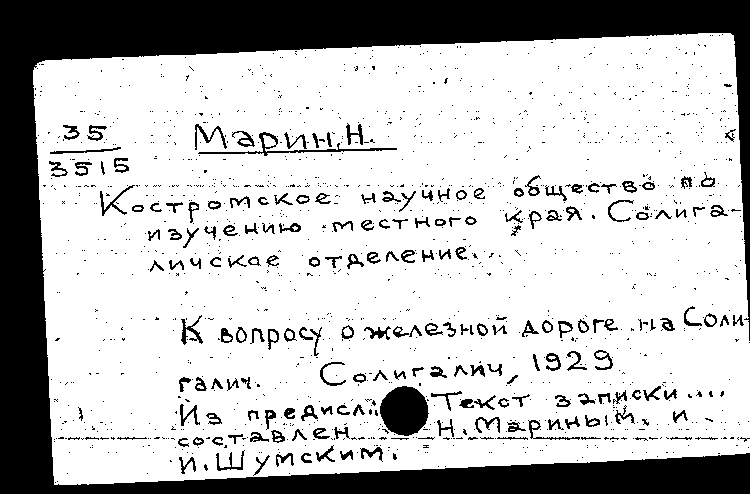 35
3515
Марин, Н.
Костромское научное общество по
изучению местного края. Солига-
личское отделение.
К вопросу о железной дороге на Соли-
галич. Солигалич, 1929
Из предисл.: Текст записки....
составлен Н. Мариным. и
И. Шумским.